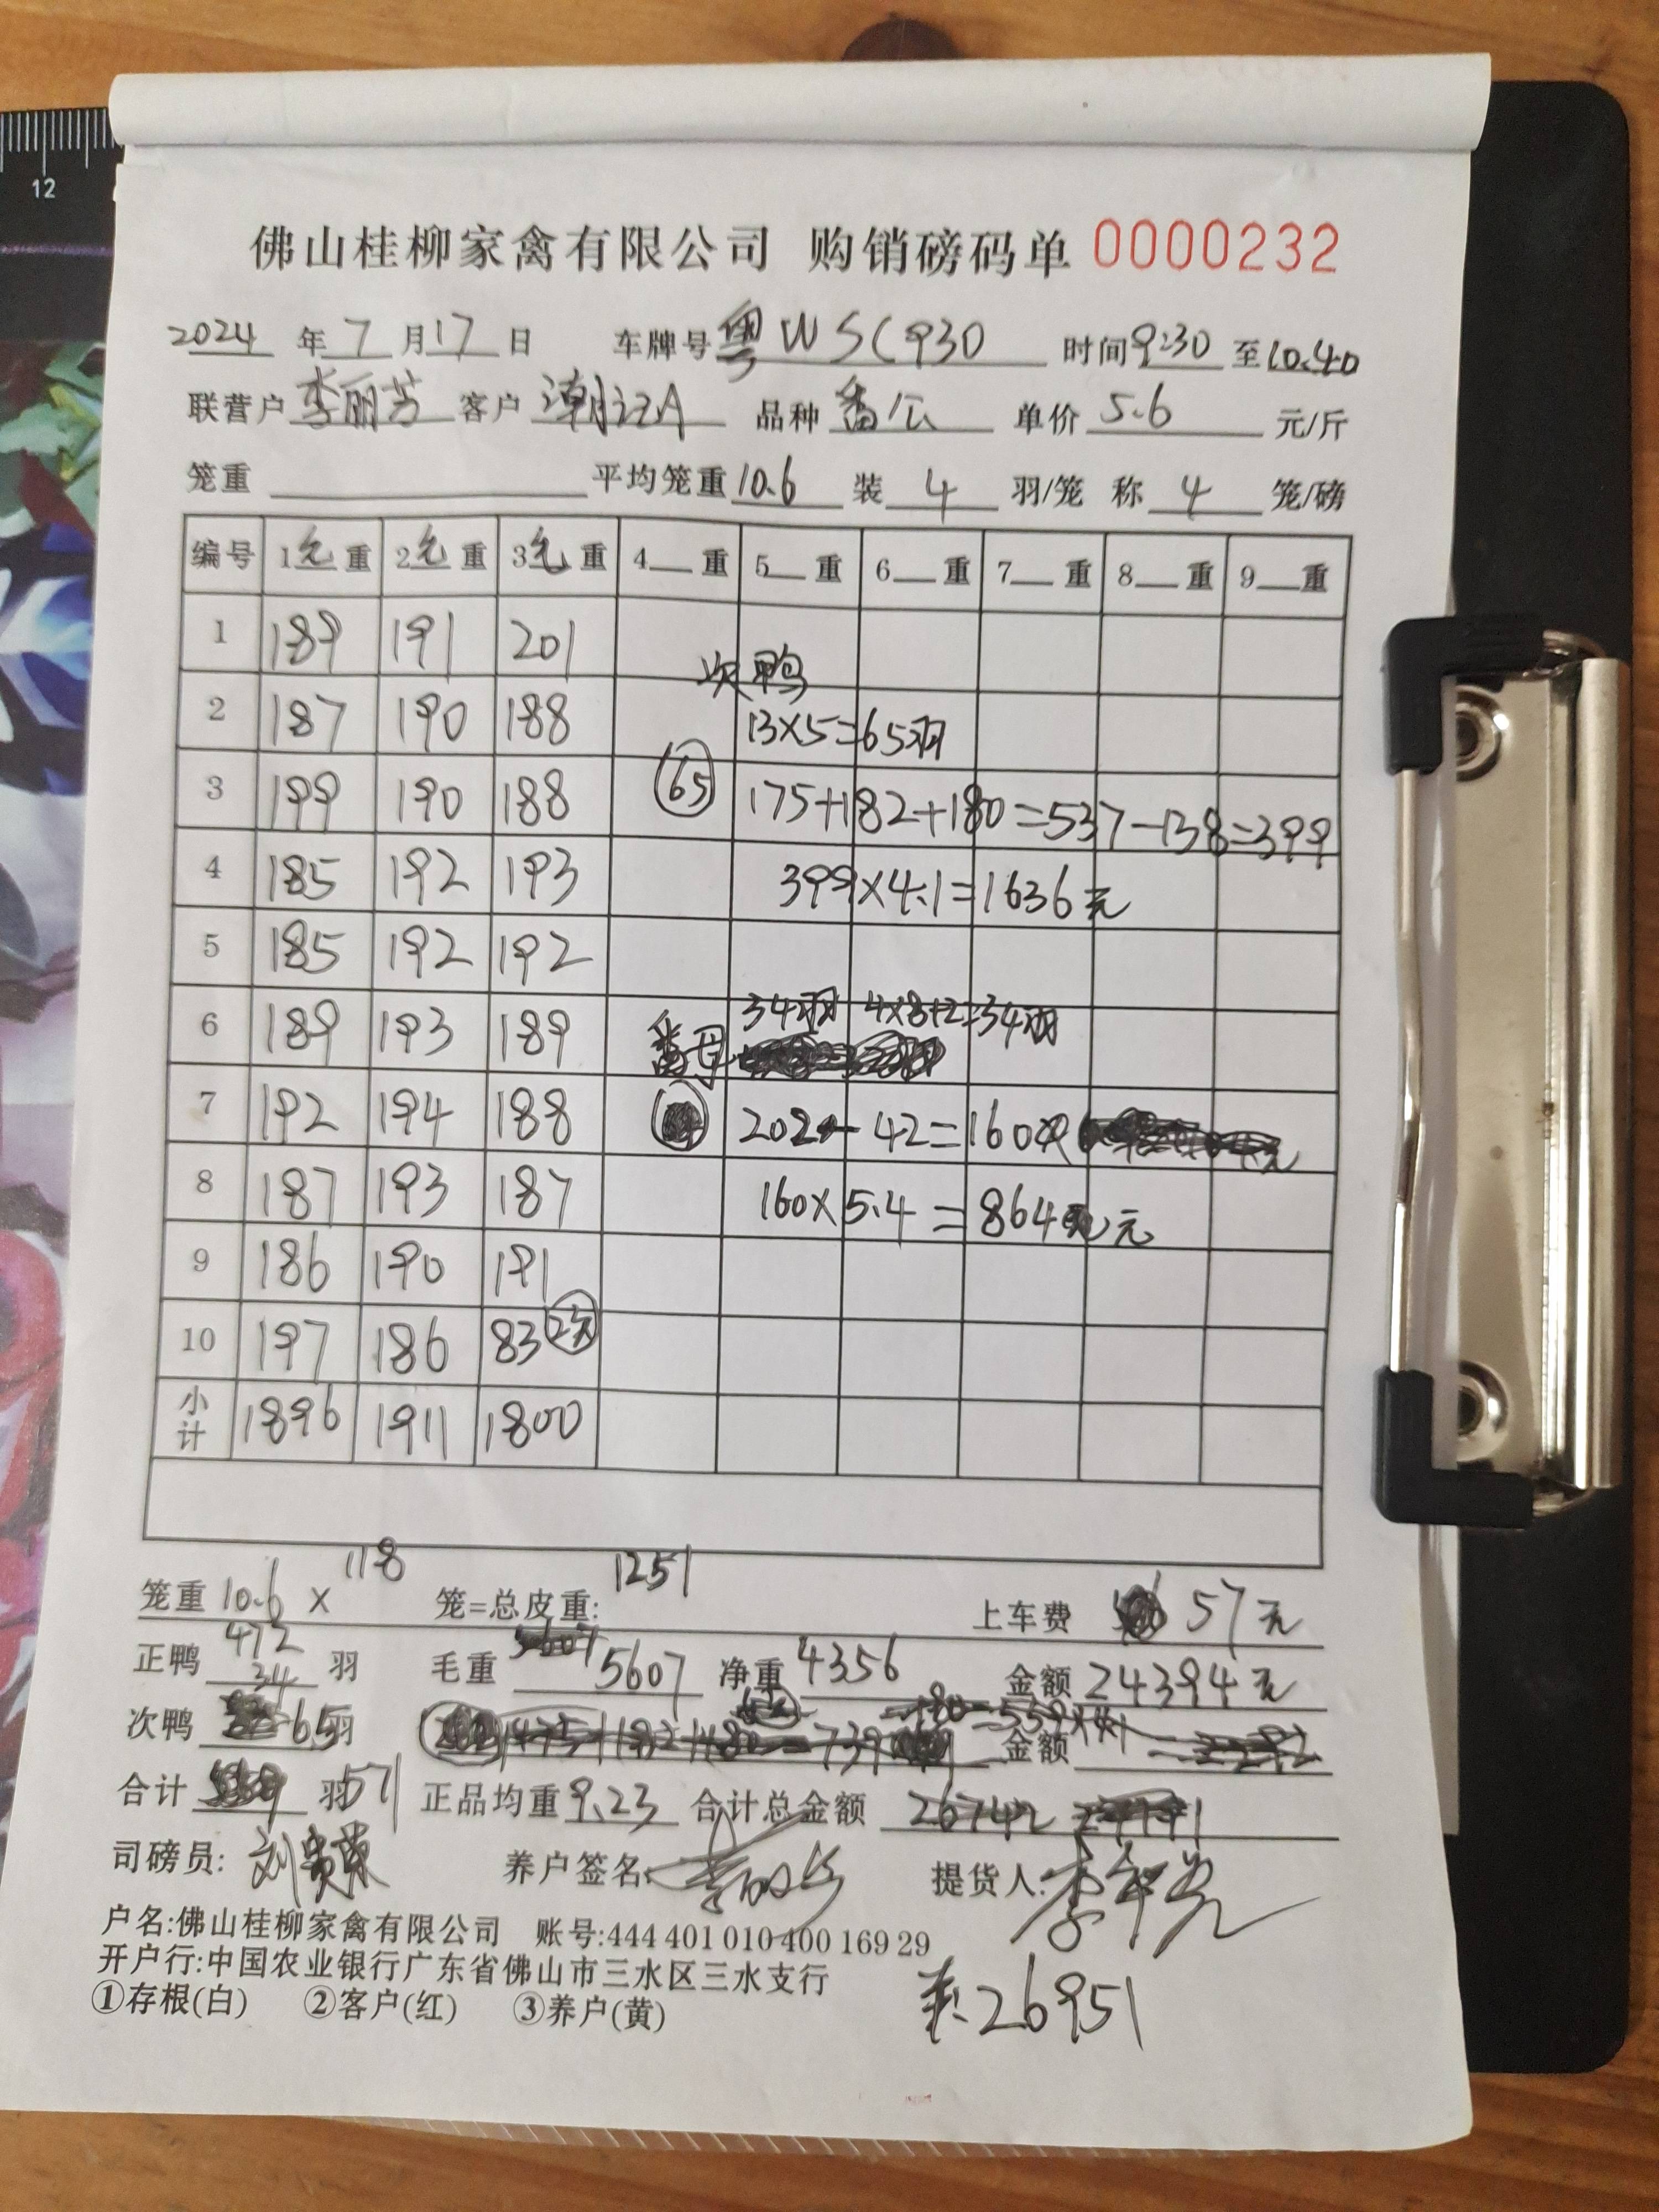 12
佛山桂柳家禽有限公司 购销磅码单 0000232
2024 年 7 月 17 日 车牌号 粤WSC930 时间 9:30 至 10.40
联营户 李丽芳 客户 潮记A 品种 番公 单价 5.6 元/斤
笼重 平均笼重 10.6 装 4 羽/笼 称 4 笼/磅
编号 1毛重 2毛重 3毛重 4 重 5 重 6 重 7 重 8 重 9 重
1 189 191 201
次鸭
2 187 190 188 13×5=65羽
3 199 190 188 65 175+182+180=537-138=399
4 185 192 193 399×4.1=1636元
5 185 192 192
6 189 193 189 番母 34羽 4×8+2=34羽
7 192 194 188 202-42=160
8 187 193 187 160×5.4=864元
9 186 190 191
10 197 186 83
小计 1896 1911 1800
笼重 10.6 × 118 笼=总皮重: 1251 上车费 57元
正鸭 472 34 羽 毛重 5607 净重 4356 金额 24394元
次鸭 65羽 金额
合计 羽571 正品均重 9.23 合计总金额 26742
司磅员: 刘贵荣 养户签名: 提货人:
户名:佛山桂柳家禽有限公司 账号:444 401 010 400 169 29
开户行:中国农业银行广东省佛山市三水区三水支行
①存根(白) ②客户(红) ③养户(黄)
26951